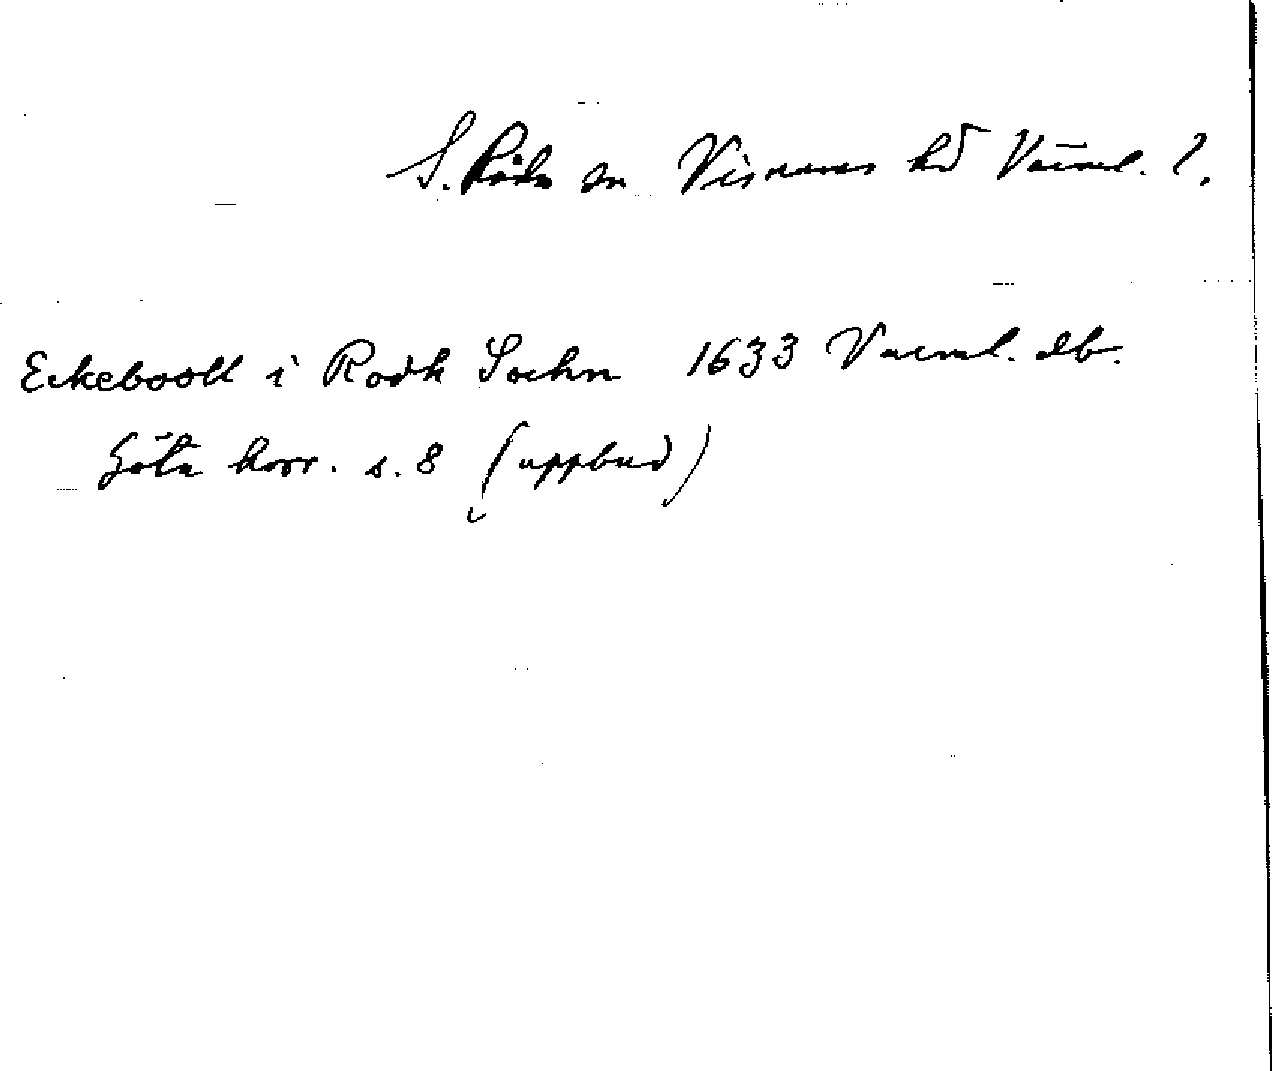 S. Råda sn Visnums hd Värml. ?.
Eckebooll i Rodh Sochn 1633 Värml. db.
Göta hovr. s. 8 (uppbud)